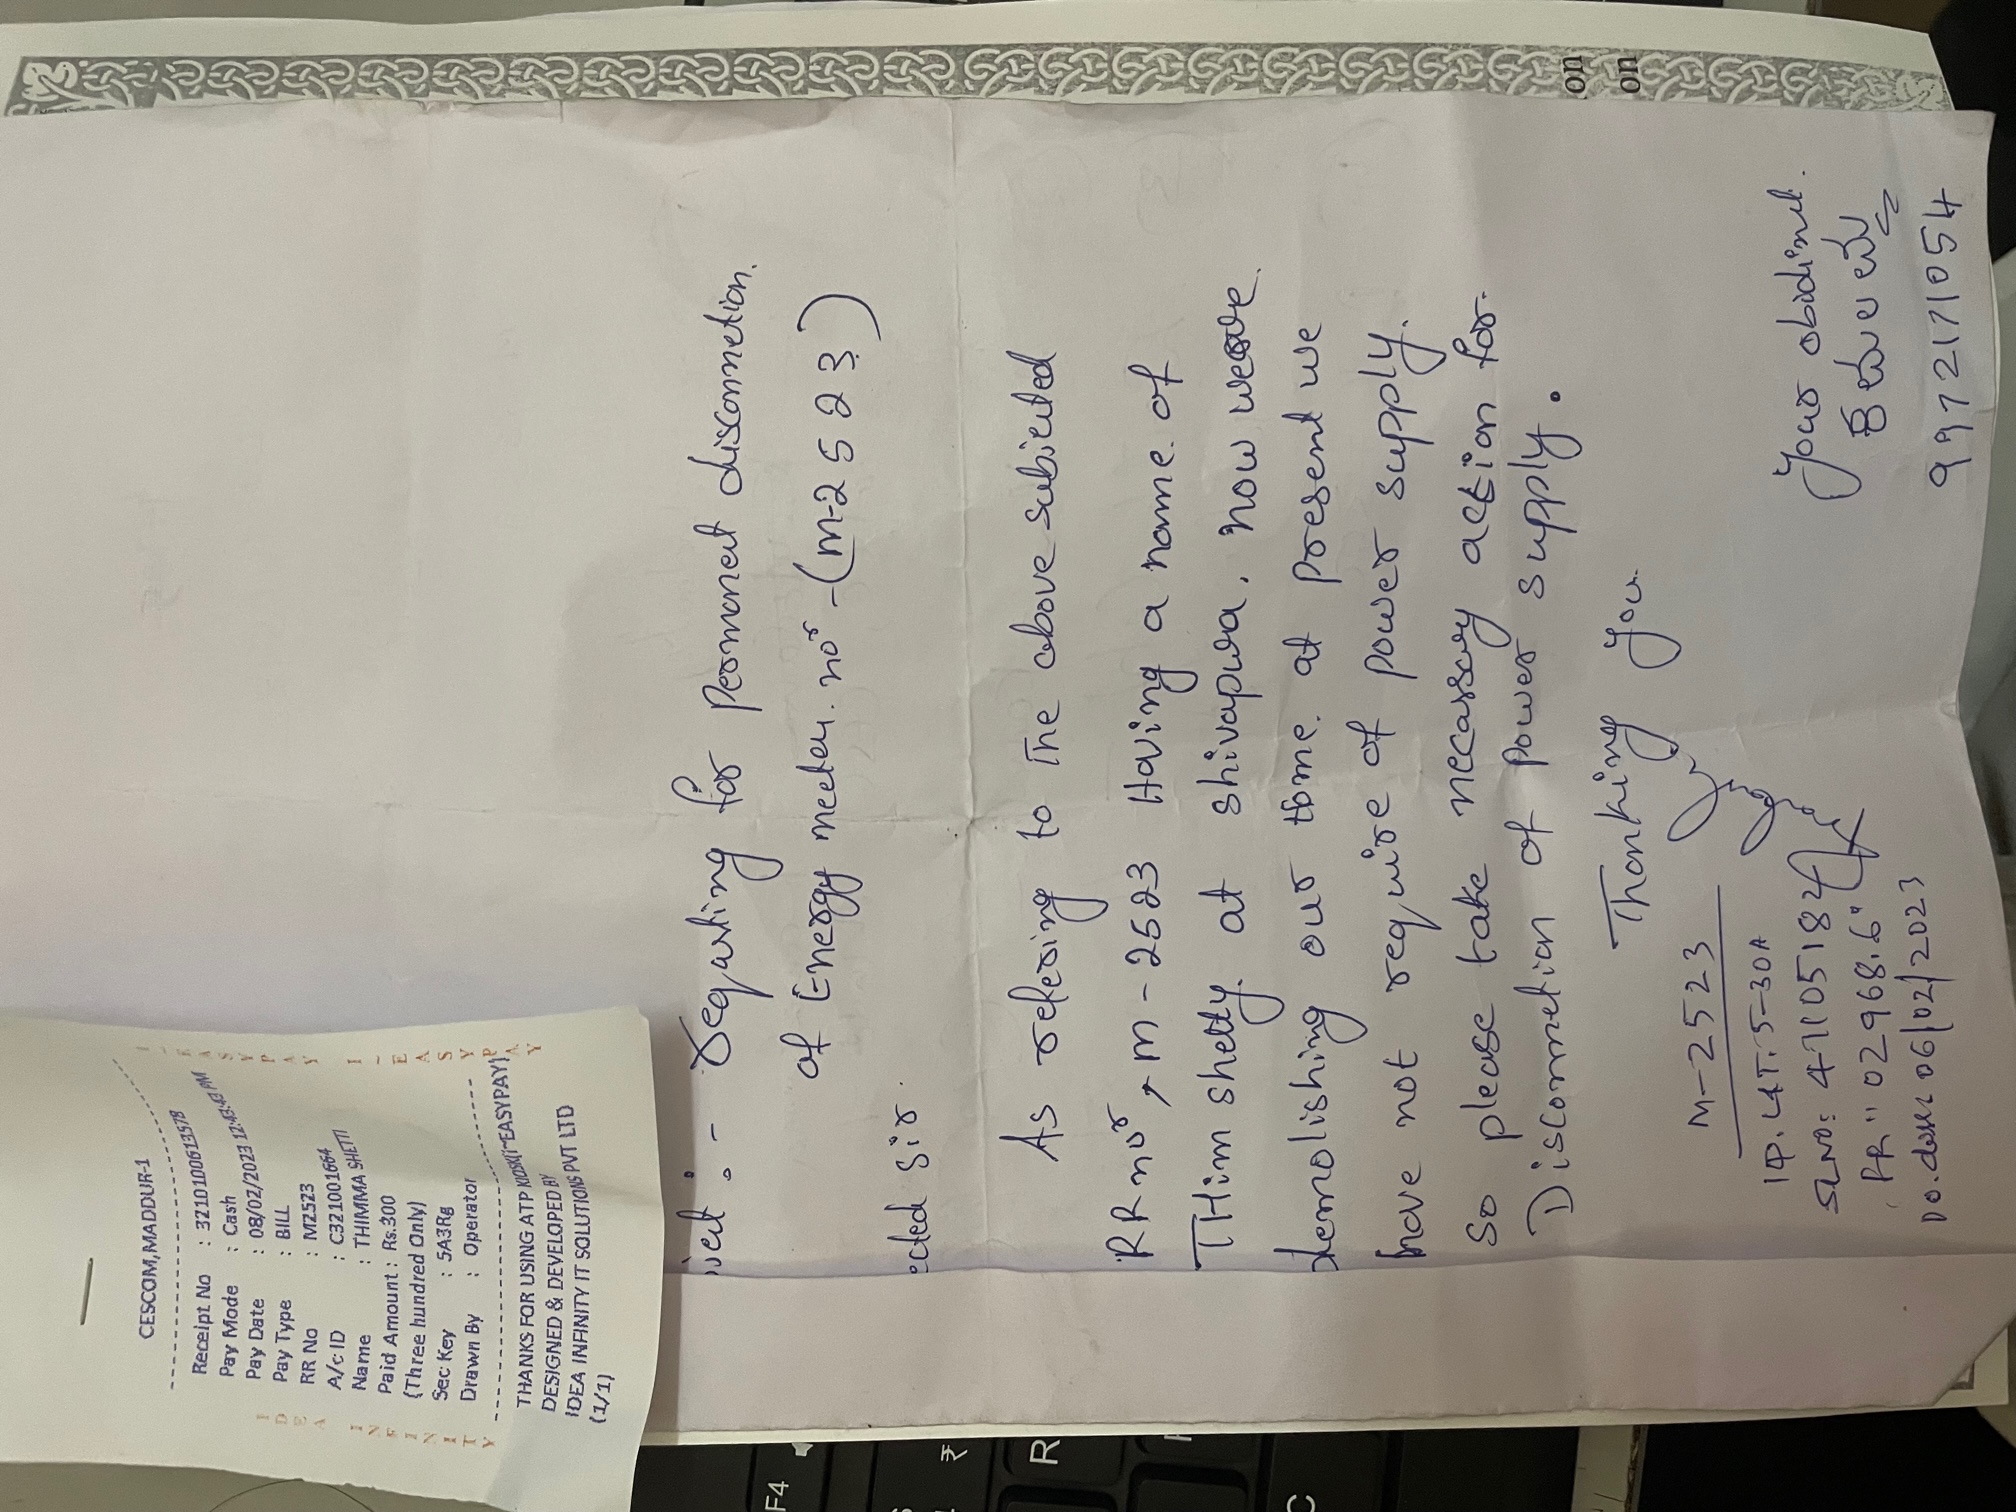 CESCOM,MADDUR-1
Receipt No : 3210100613578
Pay Mode : Cash
Pay Date : 08/02/2023 12:43:43 PM
Pay Type : BILL
RR No : M2523
A/c ID : C3210001664
Name : THIMMA SHETTI
Paid Amount : Rs.300
(Three hundred Only)
Sec Key : 5A3Rg
Drawn By : Operator
THANKS FOR USING ATP KIOSK(i~EASYPAY)
DESIGNED & DEVELOPED BY
IDEA INFINITY IT SOLUTIONS PVT LTD
(1/1)
IDEA INFINITY
I-EASYPAY I-EASYPAY
ject :- reqarting for permonet disconnetion.
of Energy meeter. nor -(m-2523)
ected sir.
As refering to The above subjected
RR nor, m-2523 Having a name of
THim shetty. at shivapura. now weare
demolishing our home. at present we
have not require of power supply.
so please take neccassary action for
Disconnetion of power supply.
Thanking you
your obidint.
9972171054
M-2523
1Φ. L&T. 5-30A
SLNO: 47105182
FR" 02968.6"
Do. 06/02/2023
on
on
F4
₹
R
C